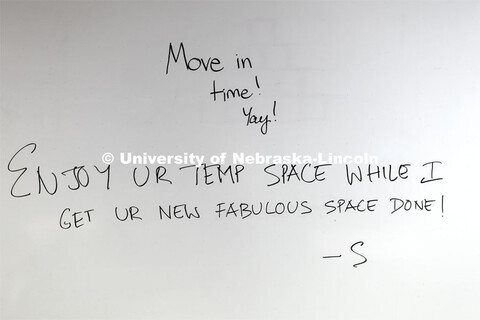 Move in
time!
Yay!
© University of Nebraska-Lincoln
ENJOY UR TEMP SPACE WHILE I
GET UR NEW FABULOUS SPACE DONE!
-S